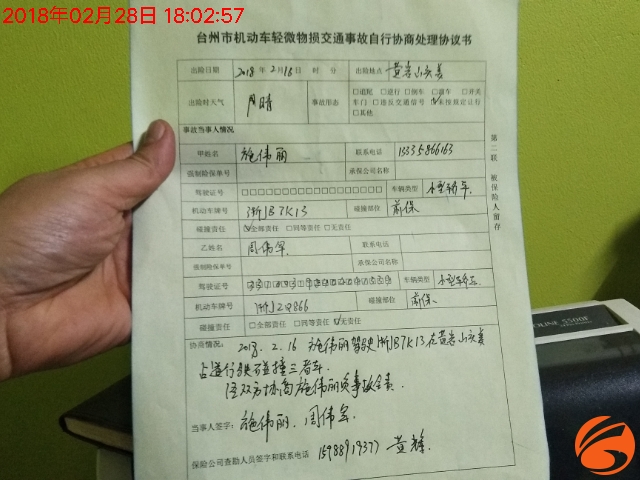 2018年02月28日 18:02:57
台州市机动车轻微物损交通事故自行协商处理协议书
出险日期 2018 年 2 月 16 日 时 分 出险地点 黄岩山头姜
出险时天气 阴晴 事故形态 □追尾 □逆行 □倒车 □溜车 □开关
车门 □违反交通信号 ☑未按规定让行
□其他
事故当事人情况
甲姓名 施伟丽 联系电话 13335866163
强制险保单号 承保公司名称
驾驶证号 □□□□□□□□□□□□□□□□□□ 车辆类型 小型轿车
机动车牌号 浙JB7K13 碰撞部位 前保
碰撞责任 ☑全部责任 □同等责任 □无责任
乙姓名 周伟军 联系电话
强制险保单号 承保公司名称
驾驶证号 车辆类型 小型轿车
机动车牌号 浙J2Q866 碰撞部位 前保
碰撞责任 □全部责任 □同等责任 ☑无责任
协商情况: 2018. 2. 16 施伟丽驾驶浙JB7K13在黄岩山头姜
占道行驶碰撞三者车.
经双方协商施伟丽负事故全责.
当事人签字: 施伟丽. 周伟军.
保险公司查勘人员签字和联系电话 15988919377 黄峰.
第二联 被保险人留存
OLINE 5500E